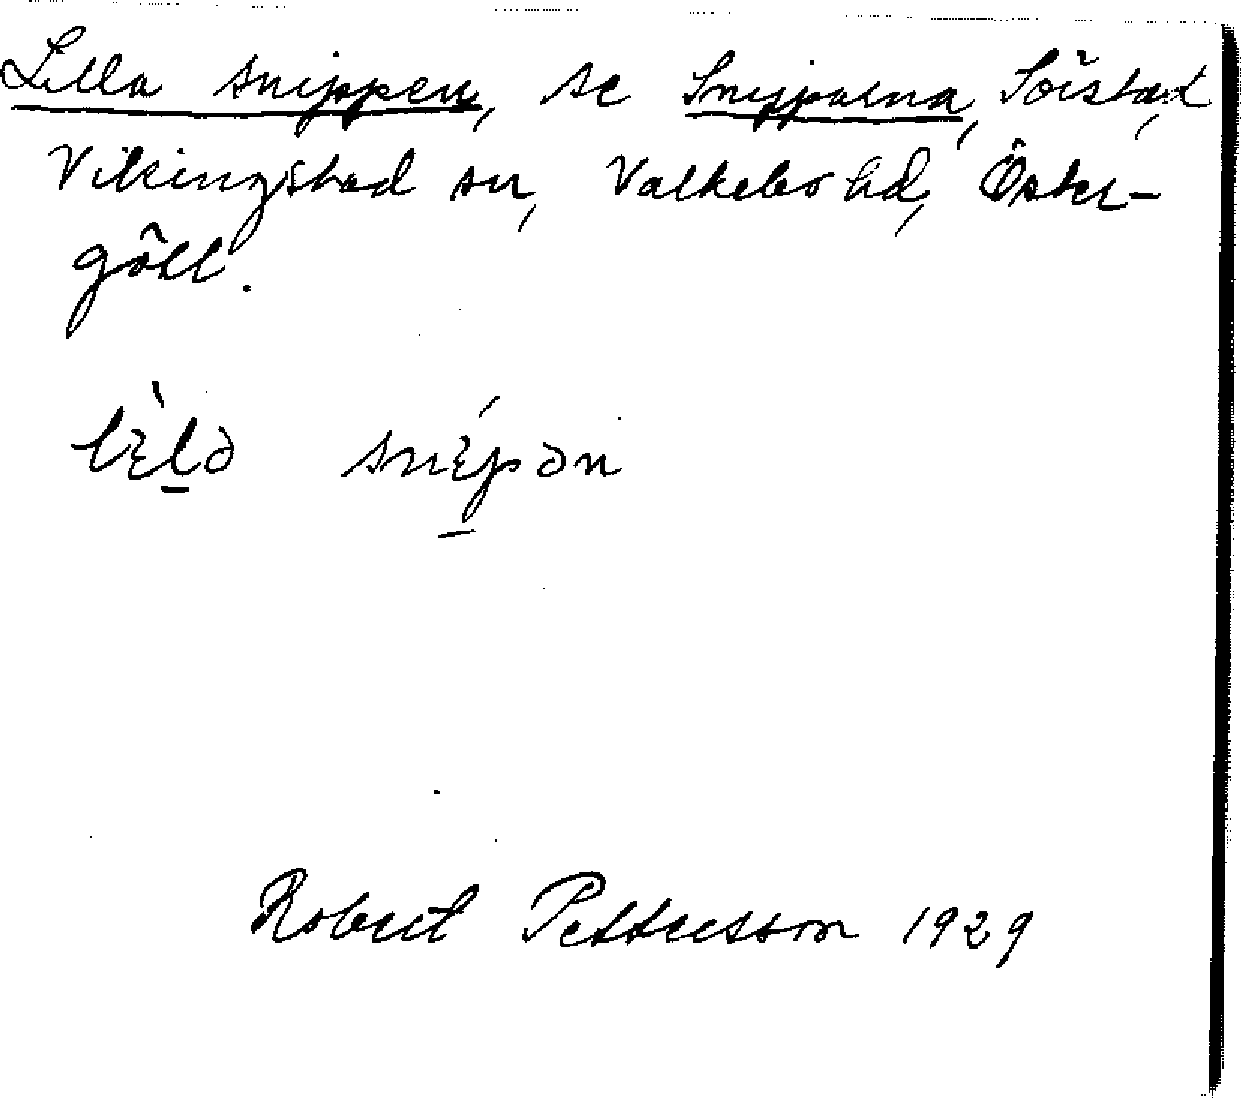 Lilla snippen, se Snipparna, Sörstad,
Vikingstad sn, Valkebo hd, Öster-
götl.
lèlə snépən
Robert Pettersson 1929